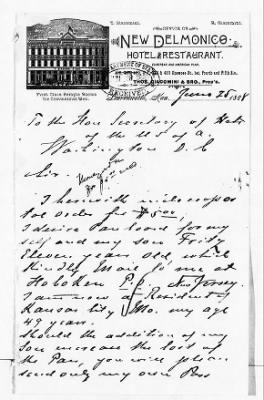 T. GIACOMINI.
OFFICE OF
M. GIACOMINI.
NEW DELMONICO
HOTEL & RESTAURANT.
EUROPEAN AND AMERICAN PLAN.
THOS. GIACOMINI & BRO., Prop's.
First Class Sample Rooms
for Commercial Men.
Mo. June 25 1888
To the Hon Secretary of State
of the U.S of A.
Washington D. C
Sir.
I herewith enclose pos
tal order for $5.00,
I desire Pass port for my
self and my son Fritz
Eleven years old, which
Kindly Mail to me at
Hoboken P.O. New Jersey.
I am now a Resident of
Kansas City Mo. my age
49 years.
Should the addition of my
Son increase the cost of
the Pass, you will please
send only my own Pass